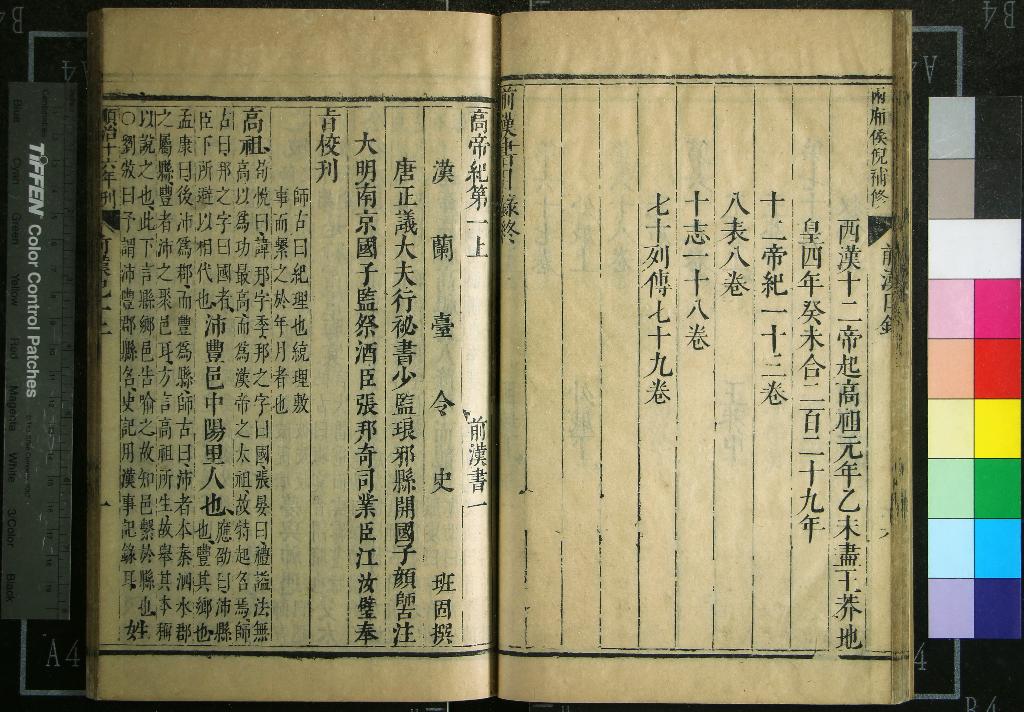 兩廂侯倪補修
前漢目錄
西漢十二帝起高祖元年乙未盡王莽地
皇四年癸未合二百二十九年
十二帝紀一十三卷
八表八卷
十志一十八卷
七十列傳七十九卷
前漢書目錄終
高帝紀第一上
前漢書一
漢蘭臺令史
班固撰
唐正議大夫行祕書少監琅邪縣開國子顔師古注
大明南京國子監祭酒臣張邦奇司業臣江汝璧奉
旨校刊
師古曰紀理也統理衆
事而繫之於年月者也
高祖
荀悅曰諱邦字季邦之字曰國張晏曰禮謚法無
高以爲功最高而爲漢帝之太祖故特起名焉師
古曰邦之字曰國者
臣下所避以相代也
沛豐邑中陽里人也
應劭曰沛縣
也豐其鄉也
孟康曰後沛爲郡而豐爲縣師古曰沛者本秦泗水郡
之屬縣豐者沛之聚邑耳方言高祖所生故舉其本稱
以說之也此下言縣鄉邑告喻之故知邑繫於縣也
○劉攽曰予謂沛豐郡縣名史記用漢事記錄耳
姓
順治十六年刊
一
TIFFEN Color Control Patches
Blue
Cyan
Green
Yellow
Red
Magenta
White
3/Color
Black
A4
B4